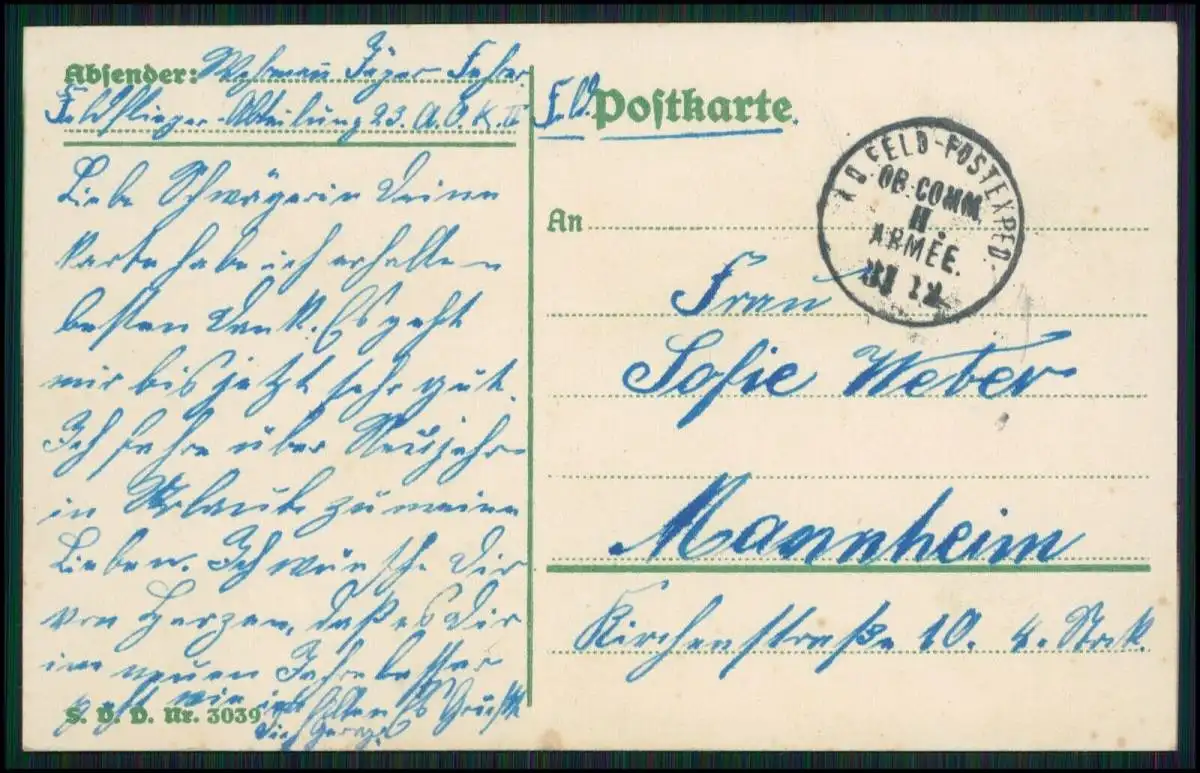 Absender: Wehrmann Jäger Fahrer
Feldflieger-Abteilung 23. A.O.K. II
Liebe Schwägerin Deine
Karte habe ich erhalten
besten Dank. Es geht
mir bis jetzt sehr gut.
Ich fahre über Neujahr
in Urlaub zu meine
Lieben. Ich wünsche Dir
von Herzen, daß es Dir
im neuen Jahre besser
geht wie im alten Es Grüßt
Dich Georg
S. V. D. Nr. 3039
Feld Postkarte.
K.D. FELD-POSTEXPED.
OB. COMM.
II.
ARMEE.
An
Frau
Sofie Weber
Mannheim
Kirchenstraße 10. 4. Stock.